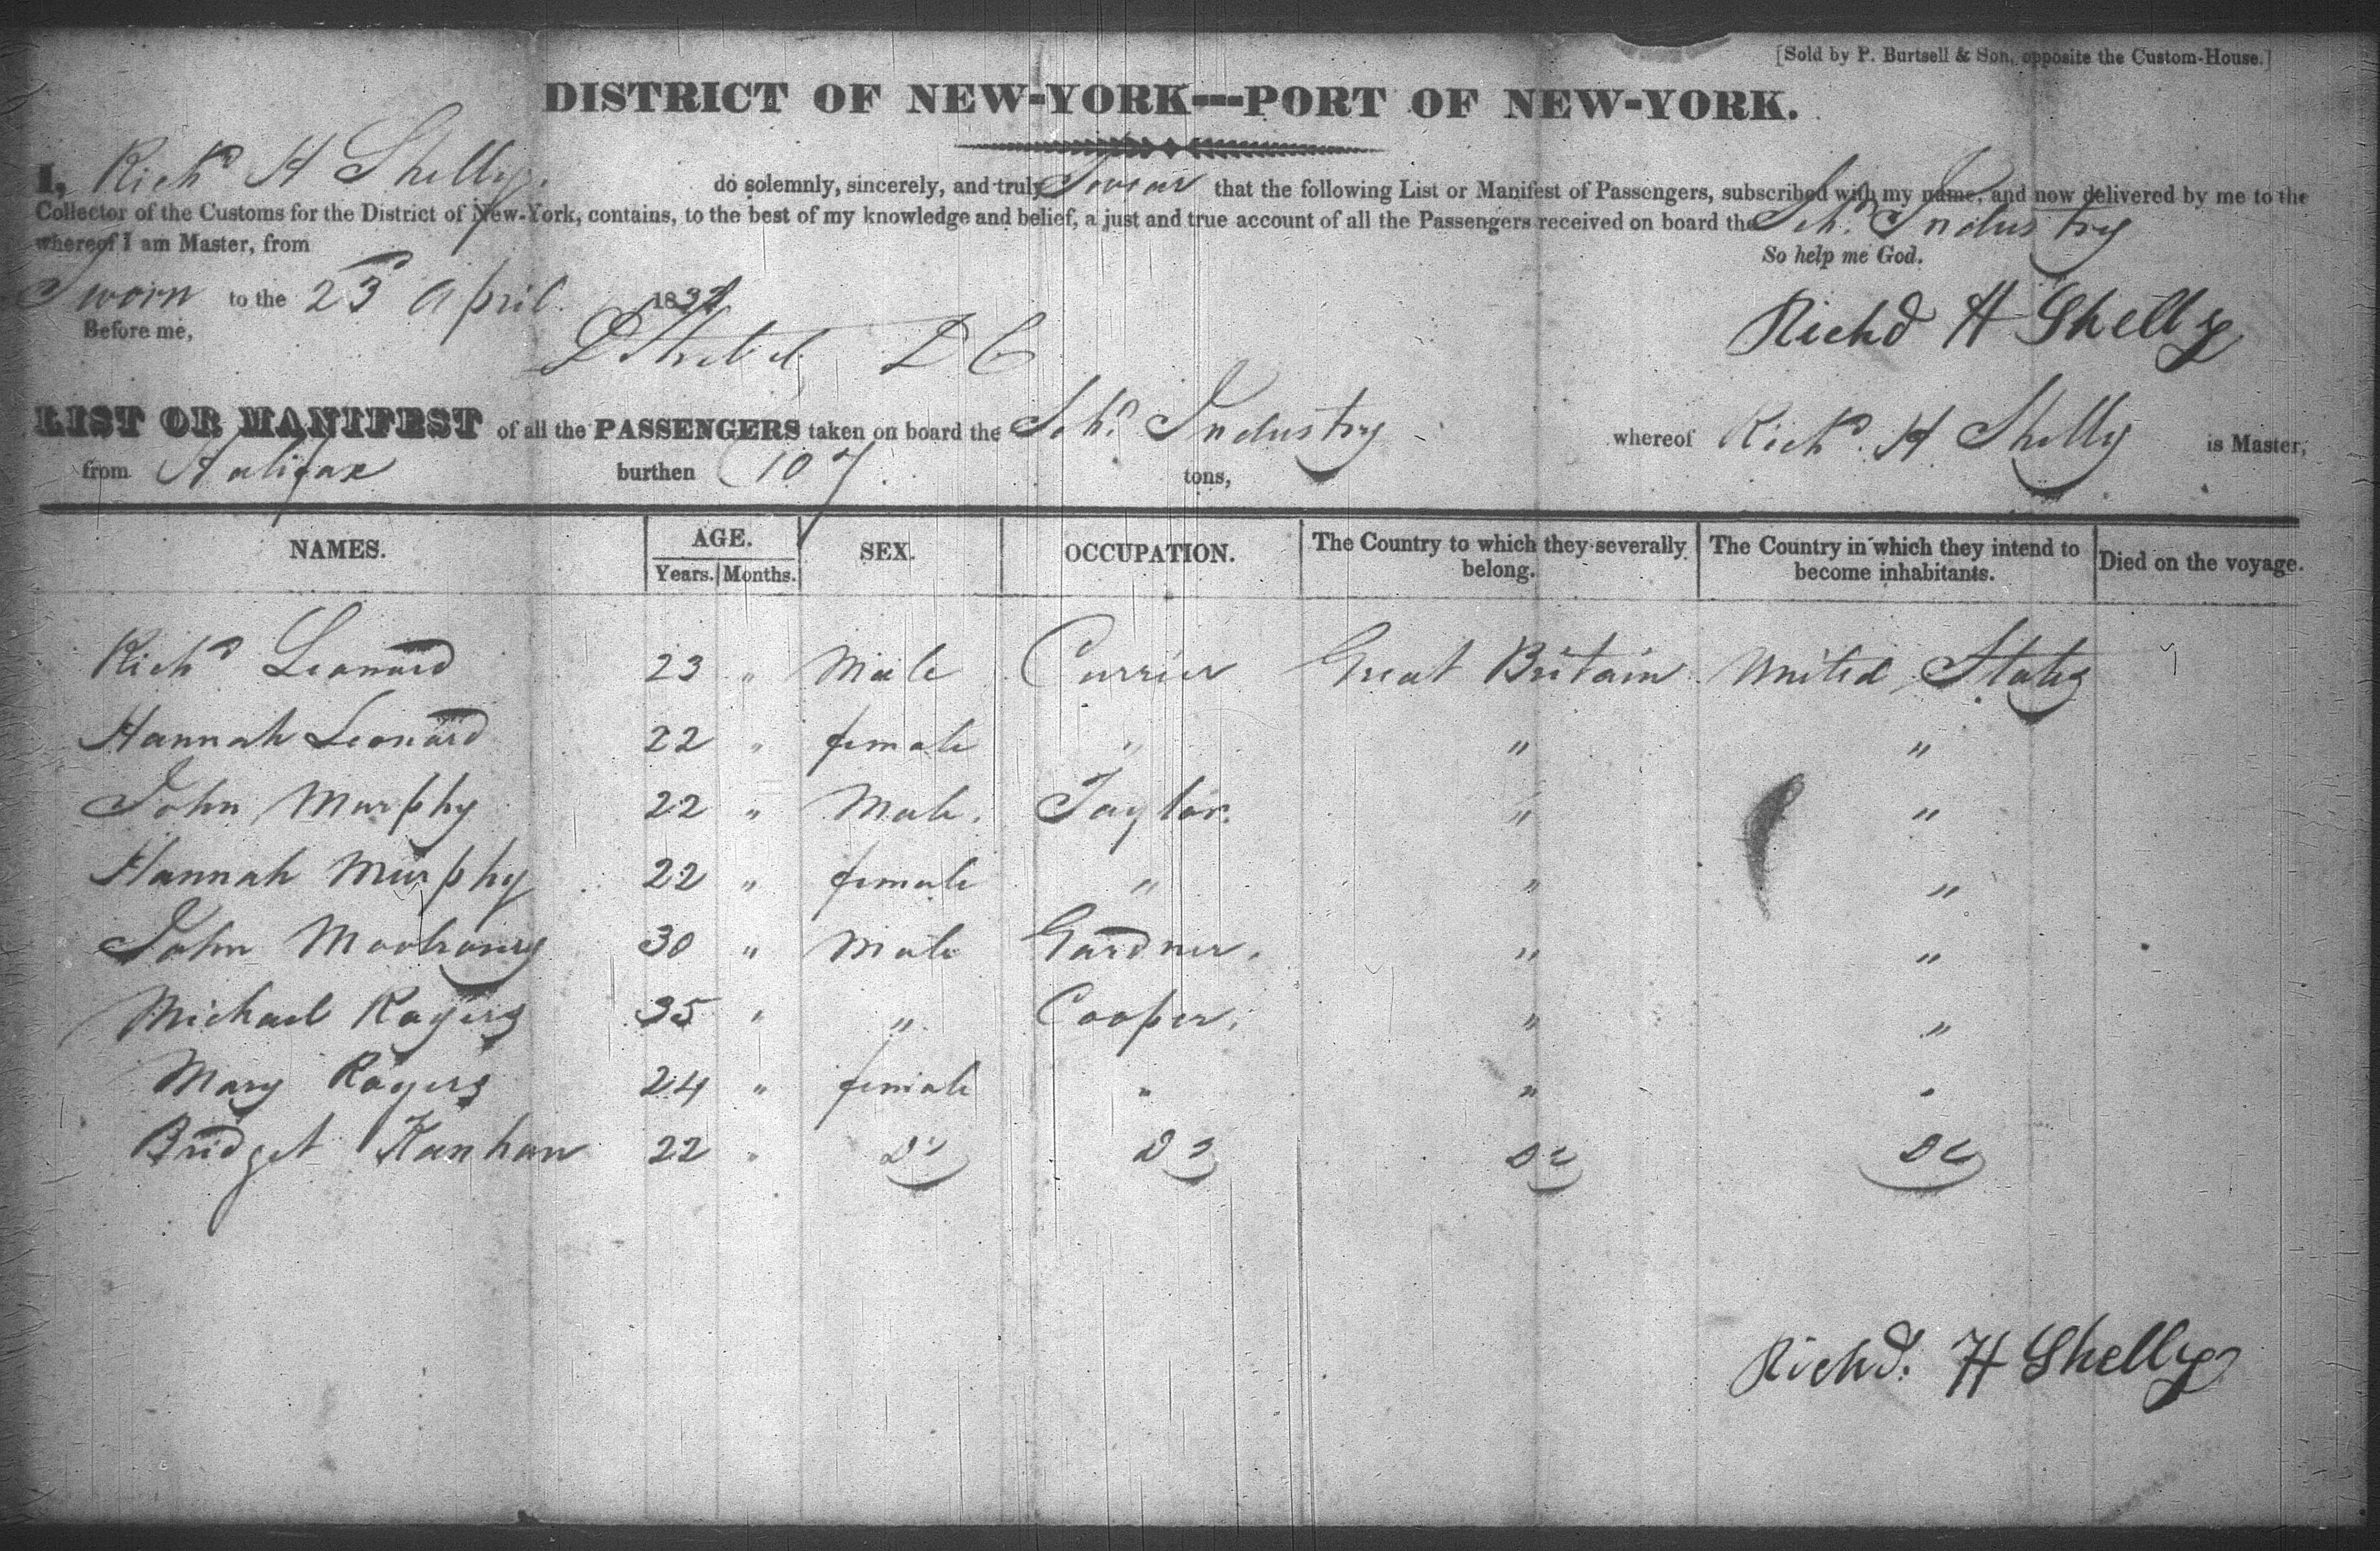 [Sold by P. Burtsell & Son, opposite the Custom-House.]
DISTRICT OF NEW-YORK---PORT OF NEW-YORK.
I, Richd H Shelly do solemnly, sincerely, and truly Swear that the following List or Manifest of Passengers, subscribed with my name, and now delivered by me to the
Collector of the Customs for the District of New-York, contains, to the best of my knowledge and belief, a just and true account of all the Passengers received on board the Schr. Industry
whereof I am Master, from
So help me God.
Sworn to the 23 April 183
Before me,
Richd H Shelly
D C
LIST OR MANIFEST of all the PASSENGERS taken on board the Schr. Industry whereof Richd. H Shelly is Master,
from Halifax burthen 107 tons,
NAMES. AGE. Years. Months. SEX. OCCUPATION. The Country to which they severally belong. The Country in which they intend to become inhabitants. Died on the voyage.
Richd Leonard 23 " Male Currier Great Britain United States
Hannah Leonard 22 " female " " "
John Murphy 22 " Male. Taylor. " "
Hannah Murphy 22 " female " " "
John 30 " Male Gardner. " "
Michael Rogers 35 " " Cooper. " "
Mary Rogers 24 " female " " "
Bridget Kanhan 22 " Do Do Do Do
Richd. H Shelly